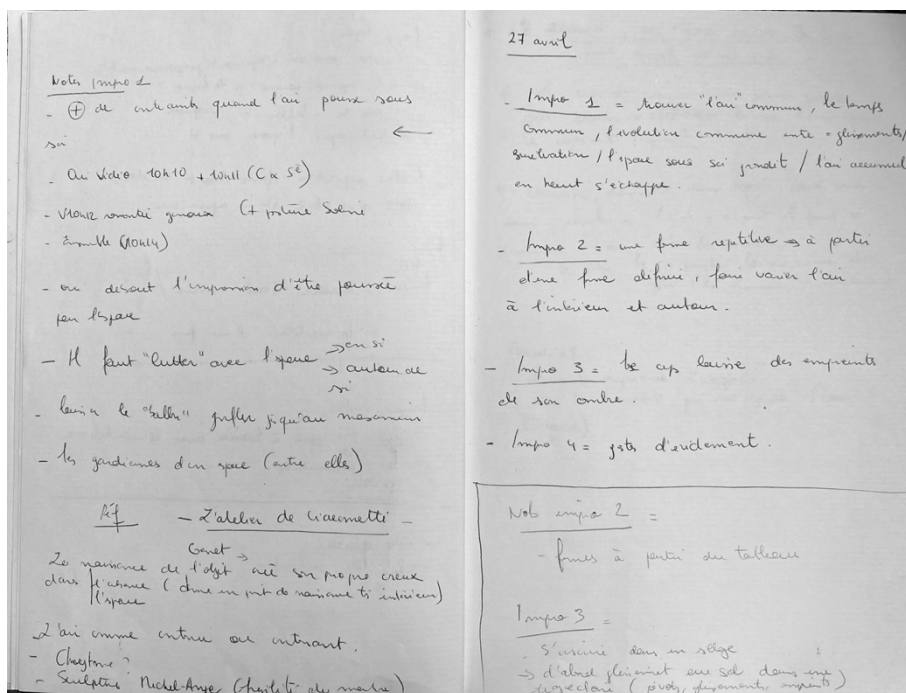 Notes impro 1
- ⊕ de contraints quand l'air pousse sous
soi
- Ou vidéo 10h10 + 10h11 (
- V10h12 genoux (+ posture
- Ensemble (10h14)
- on dirait l'impression d'être poussée
par l'espace
- Il faut "lutter" avec l'espace → en soi
→ autour de
soi
- laisser le "ballon" gonfler jusqu'au maximum
- les gardiennes d'un espace (entre elles)
Réf - L'atelier de Giacometti -
Genet →
La naissance de l'objet créé son propre creux
dans l'absence (donne un pt de naissance très intérieur)
l'espace
L'air comme contenu ou contenant.
-
- Sculpture Michel-Ange (du marbre)
27 avril
- Impro 1 = trouver "l'air" commun, le temps
commun, l'évolution commune entre = glissements/
surélévation / l'espace sous soi grandit / l'air accumulé
en haut s'échappe.
- Impro 2 = une forme répétitive → à partir
d'une forme définie, faire varier l'air
à l'intérieur et autour.
- Impro 3 = le cps laisse des empreintes
de son ombre.
- Impro 4 = gestes d'évidement.
Notes impro 2 =
- formes à partir du tableau
Impro 3 =
- S'inscrire dans un
→ d'abord glissement au sol dans une
trajectoire (pivots, glissements,